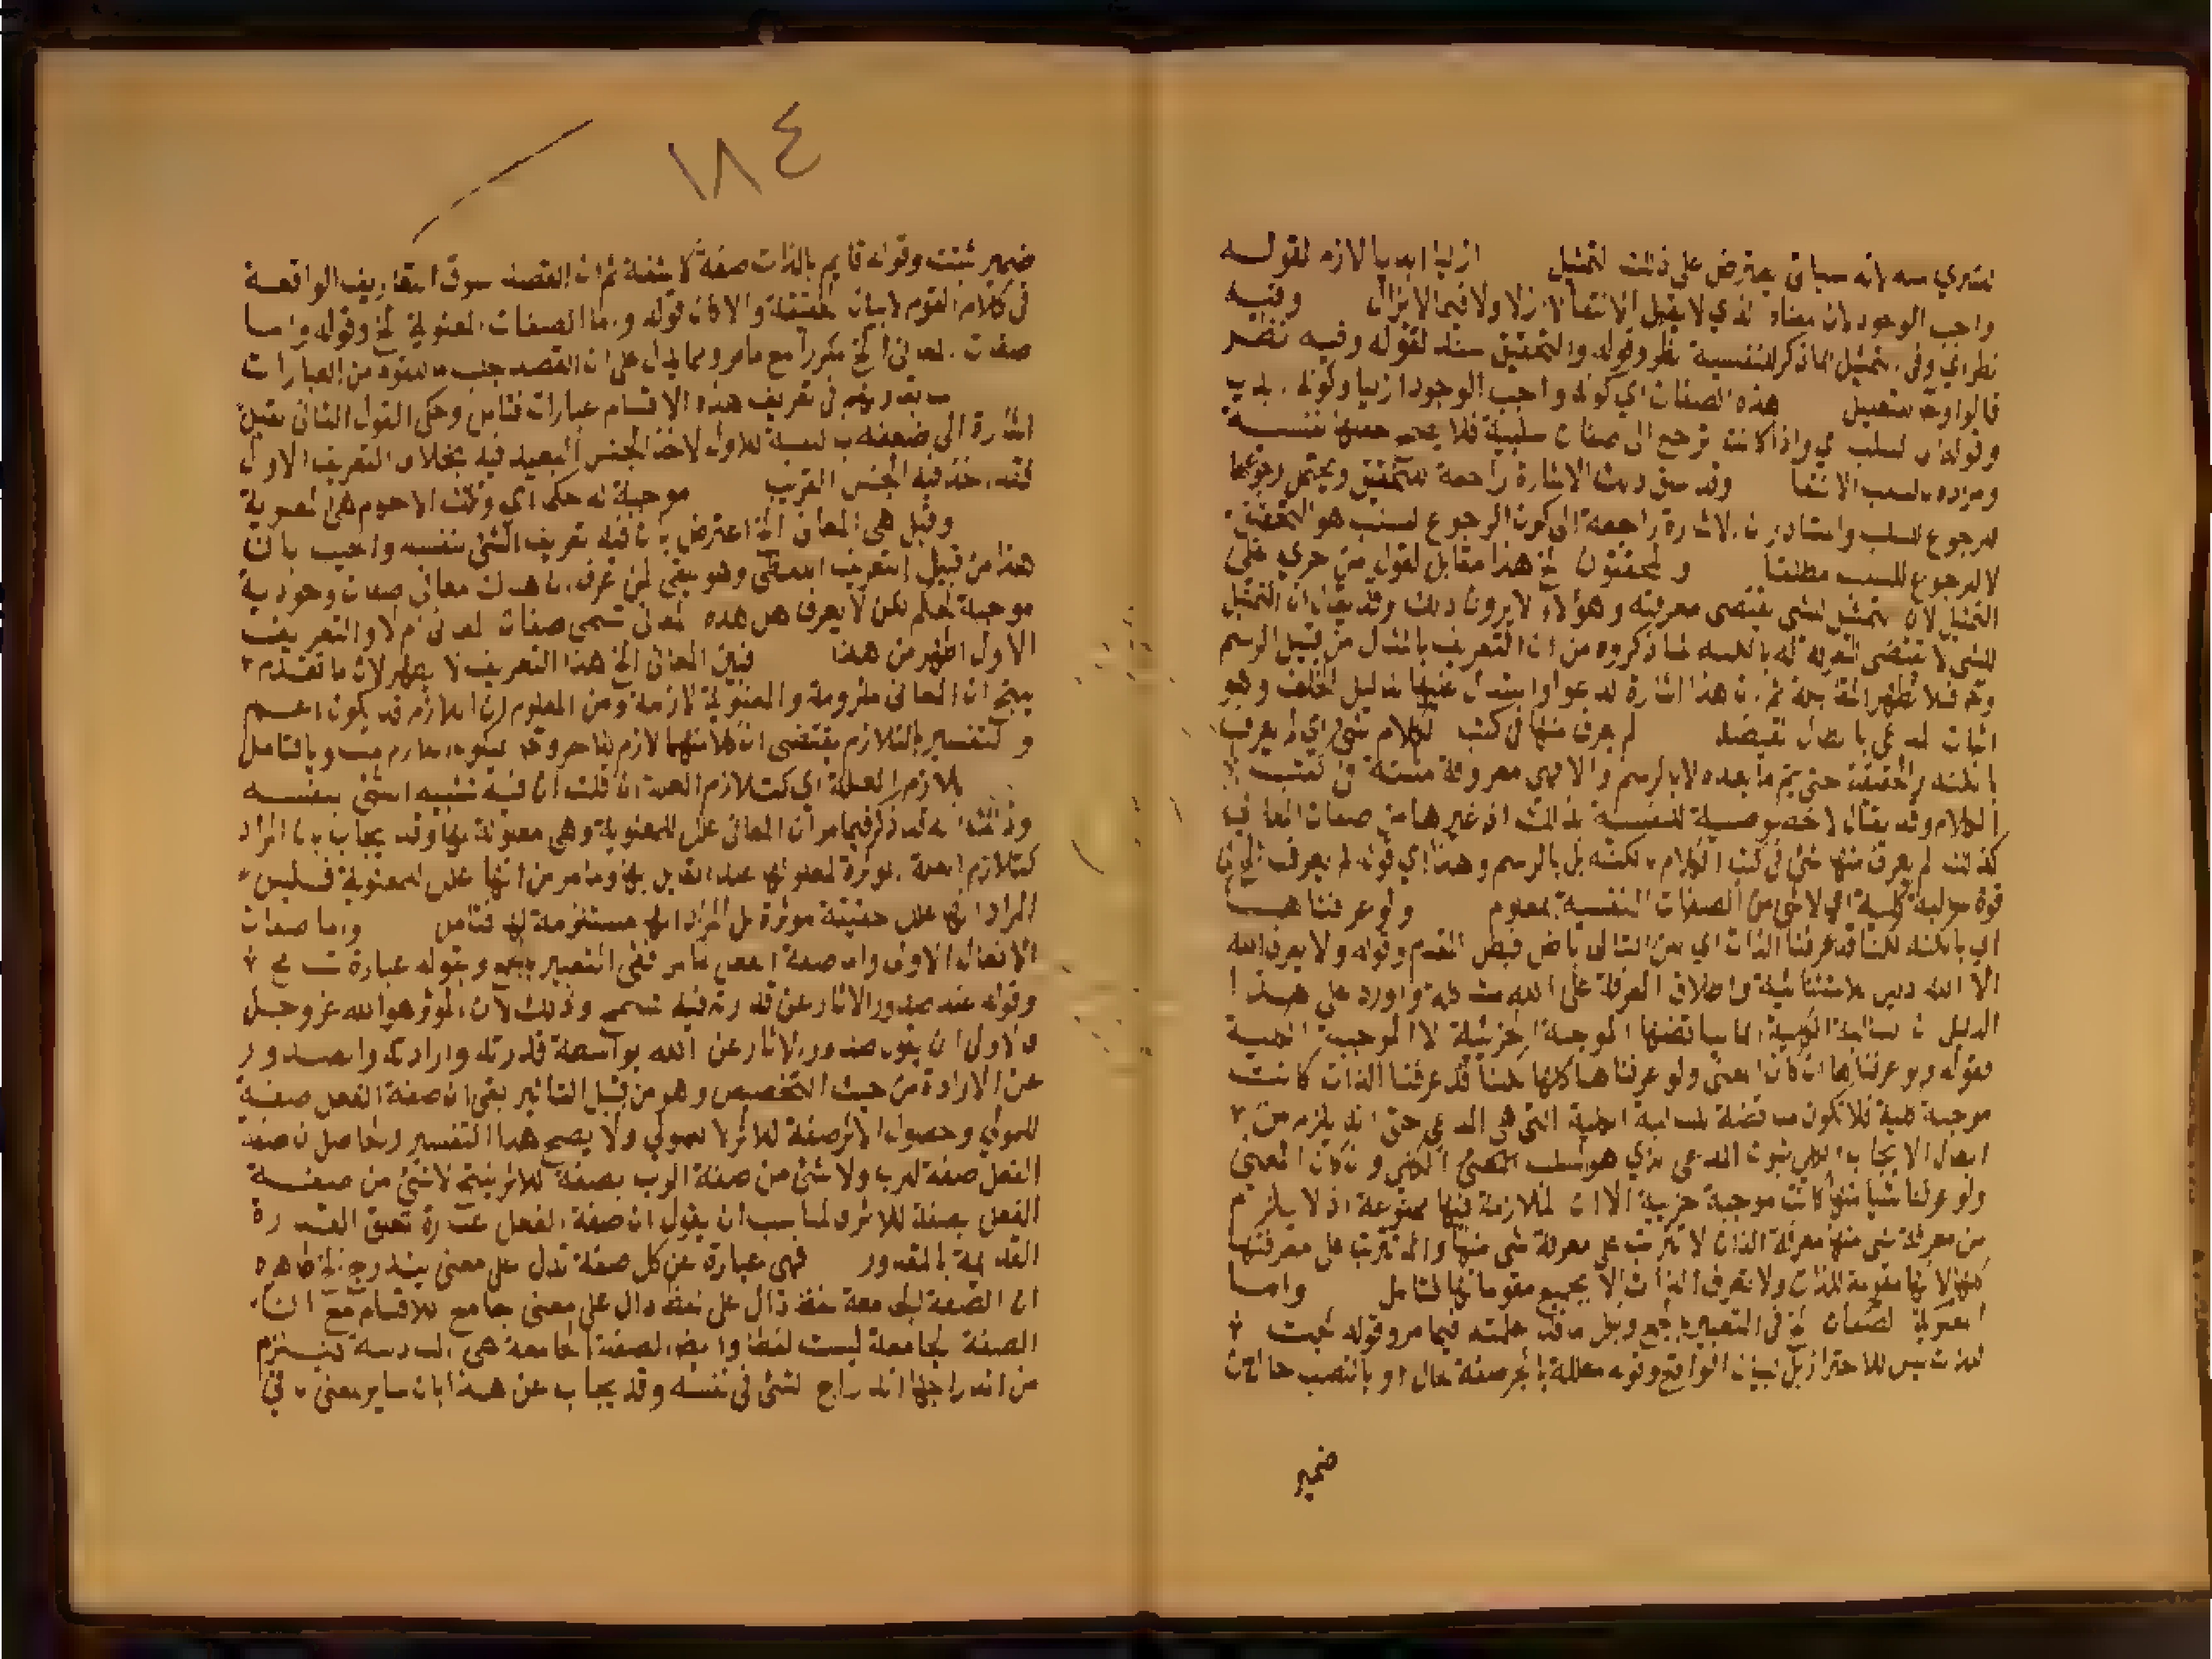 لانه سياتي يعترض على ذلك التمثيل ازليا ابديا لازم لقوله
واجب الوجود لان معناه الذي لا يقبل الانتفا لا ازلا ولا فيما لا يزال وفيه
نظر اي وفي تمثيل لما ذكر للنفسية نظر وقوله والتحقيق سند لقوله وفيه نظر
هذه الصفات اي كونه واجب الوجود ازليا وكونه
السلب اي واذا كانت ترجع الى صفات سلبية فلا يصح جعلها نفسية
ومراده بالسلب الانتفا وقد يقال ان الاشارة راجعة للتحقيق ويحتمل رجوعها
للرجوع للسلب والمتبادر ان الاشارة راجعة الى كون الرجوع للسلب هو التحقيق
لا للرجوع للسلب مطلقا والمحققون الخ هذا مقابل لقول من جرى على
التمثيل لان تمثيل الشي يقتضي معرفته وهؤلاء لا يرون ذلك وقد يقال ان التمثيل
للشي لا يقتضي المعرفة له بالكنه لما ذكروه من ان التعريف بالمثال من قبيل الرسم
وح فلا تظهر المقابلة ثم ان هذا اشارة لدعوى استدل عليها بدليل الخلف وهو
اثبات المدعى بابطال نقيضه لم يعرف منها في كتب الكلام شي اي لم يعرف
بالكنه والحقيقة حتى يتم ما بعده لا بالرسم والا فهي معروفة مبينة في كتب
الكلام وقد يقال لا خصوصية للنفسية بذلك اذ غيرها من صفات المعاني
كذلك لم يعرف منها شي في كتب الكلام بالكنه بل بالرسم وهذا اي قوله لم يعرف الخ في
قوة سالبة كلية اي لا شي من الصفات النفسية بمعلوم ولو عرفناها
اي بالكنه لكنا قد عرفنا الذات اي لكن التالي باطل فبطل المقدم وقوله ولا يعرف الله
الا الله دليل الاستثنائية واطلاق المعرفة على الله مشاكلة واورد على هذا
الدليل ان السالبة الكلية انما يناقضها الموجبة الجزئية لا الموجبة الكلية
فقوله ولو عرفناها ان كان المعنى ولو عرفناها كلها لكنا قد عرفنا الذات كانت
موجبة كلية فلا تكون مناقضة للسالبة الكلية التي هي المدعى حتى انه يلزم من
ابطال الايجاب الكلي ثبوت المدعى الذي هو السلب الكلي وان كان المعنى
ولو عرفنا شيا منها كانت موجبة جزئية الا ان الملازمة فيها ممنوعة اذ لا يلزم
من معرفة شي منها معرفة الذات لا تترتب على معرفة شي منها وانما تترتب على معرفتها
كلها لانها مقومة للذات ولا تعرف الذات الا بجميع مقوماتها فتامل واما
المعنوية الصفات الخ في التعبير بالجمع وبكل ما قد علمته فيما مر وقوله تحيث
للذات ليس للاحتراز بل لبيان الواقع وقوله معللة بالجر صفة لحال او بالنصب حال من
ضمير
١٨٤
ضمير ثبتت وقوله قايم بالذات صفة كاشفة ثم ان القصد سوق التعاريف الواقعة
في كلام القوم لا بيان الحقيقة والا كان قوله واما الصفات المعنوية الخ وقوله واما
صفات المعاني الخ مكررا مع ما مر ومما يدل على ان القصد جلب ما للقوم من العبارات
في تعريف هذه الاقسام عبارات فتامل وحكى القول الثاني بقيل
اشارة الى ضعفه بالنسبة للاول لاخذ الجنس البعيد فيه بخلاف التعريف الاول
فقد اخذ فيه الجنس القريب موجبة له حكما اي وتلك الاحكام هي المعنوية
وقيل هي المعاني الخ اعترض بان فيه تعريف الشي بنفسه واجيب بان
هذا من قبيل التعريف اللفظي وهو يلقى لمن عرف ان هناك معاني صفات وجودية
موجبة لحكم لكن لا يعرف هل هذه المعاني تسمى صفات المعاني ام لا والتعريف
الاول اظهر من هذا فبين المعاني الخ هذا التعريف لا يظهر لان ما تقدم
ينتج ان المعاني ملزومة والمعنوية لازمة ومن المعلوم ان اللازم قد يكون اعم
والتفسير بالتلازم يقتضي ان كلا منهما لازم للاخر وبالتامل
تلازم العلة اي كتلازم العلة ان قلت ان فيه تشبيه الشي بنفسه
وذلك انه قد ذكر فيما مر ان المعاني علل للمعنوية وهي معلولة لها وقد يجاب بان المراد
كتلازم العلة المؤثرة لمعلولها عند القايل بها وما مر من انها علل للمعنوية فليس
المراد انها علل حقيقة موثرة بل المراد انها مستلزمة لها فتامل واما صفات
الافعال الاولى واما صفة الفعل كما مر ففي التعبير بالجمع وبقوله عبارة تسامح
وقوله عند صدور الاثار عن قدرته فيه تسمح وذلك لان الموثر هو الله عز وجل
فالاولى ان يقول صدور الاثار عن الله بواسطة قدرته وارادته والصدور
عن الارادة من حيث التخصيص وهو من قبيل التاثير بقي ان صفة الفعل صفة
للمولى وحصول الاثر صفة للاثر لا للمولى ولا يصح هذا التفسير والحاصل ان صفة
الفعل صفة للرب ولا شي من صفة الرب بصفة للاثر ينتج لا شي من صفة
الفعل بصفة للاثر فالمناسب ان يقول ان صفة الفعل عبارة تعلق القدرة
القديمة بالمقدور فهي عبارة عن كل صفة تدل على معنى يندرج الخ ظاهره
ان الصفة الجامعة لفظ دال على لفظ دال على معنى جامع للاقسام مع ان
الصفة الجامعة ليست لفظا وايضا الصفة الجامعة هي فيلزم
من اندراجها اندراج الشي في نفسه وقد يجاب عن هذا بان ساير بمعنى باقي